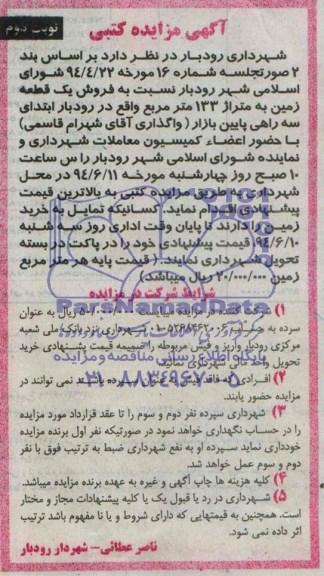 نوبت دوم
آگهی مزایده کتبی
شهرداری رودبار در نظر دارد بر اساس بند
۲ صورتجلسه شماره ۱۶ مورخه ۹۴/۴/۲۲ شورای
اسلامی شهر رودبار نسبت به فروش یک قطعه
زمین به متراژ ۱۳۳ متر مربع واقع در رودبار ابتدای
سه راهی پایین بازار ( واگذاری آقای شهرام قاسمی)
با حضور اعضاء کمیسیون معاملات شهرداری و
نماینده شورای اسلامی شهر رودبار راس ساعت
۱۰ صبح روز چهارشنبه مورخه ۹۴/۶/۱۱ در محل
شهرداری به طریق مزایده کتبی به بالاترین قیمت
پیشنهادی اقدام نماید. کسانیکه تمایل به خرید
زمین را دارند تا پایان وقت اداری روز سه شنبه
۹۴/۶/۱۰ قیمت پیشنهادی خود را در پاکت در بسته
تحویل شهرداری نمایند. ( قیمت پایه هر متر مربع
زمین ۲۰/۰۰۰/۰۰۰ ریال میباشد)
شرایط شرکت در مزایده
۱) شرکت کننده در مزایده ریال به عنوان
سپرده به حساب شهرداری نزد بانک ملی شعبه
مرکزی رودبار واریز و فیش مربوطه را ضمیمه قیمت پیشنهادی خرید
تحویل واحد مالی شهرداری نمایند
۲) افرادی که فاقد فیش سپرده باشند نمی توانند در
مزایده حضور یابند.
۳) شهرداری سپرده نفر دوم و سوم را تا عقد قرارداد مورد مزایده
را در حساب نگهداری خواهد نمود در صورتیکه نفر اول برنده مزایده
خودداری نماید سپرده او به نفع شهرداری ضبط به ترتیب فوق با نفر
دوم و سوم عمل خواهد شد.
۴) کلیه هزینه ها چاپ آگهی و غیره به عهده برنده مزایده میباشد.
۵) شهرداری در رد یا قبول یک یا کلیه پیشنهادات مجاز و مختار
است. همچنین به قیمتهایی که دارای شروط و یا نا مفهوم باشد ترتیب
اثر داده نمی شود.
ناصر عطائی- شهردار رودبار
ParsNamadData
پایگاه اطلاع رسانی مناقصه و مزایده
۰۲۱-۸۸۳۴۹۶۷۰-۵